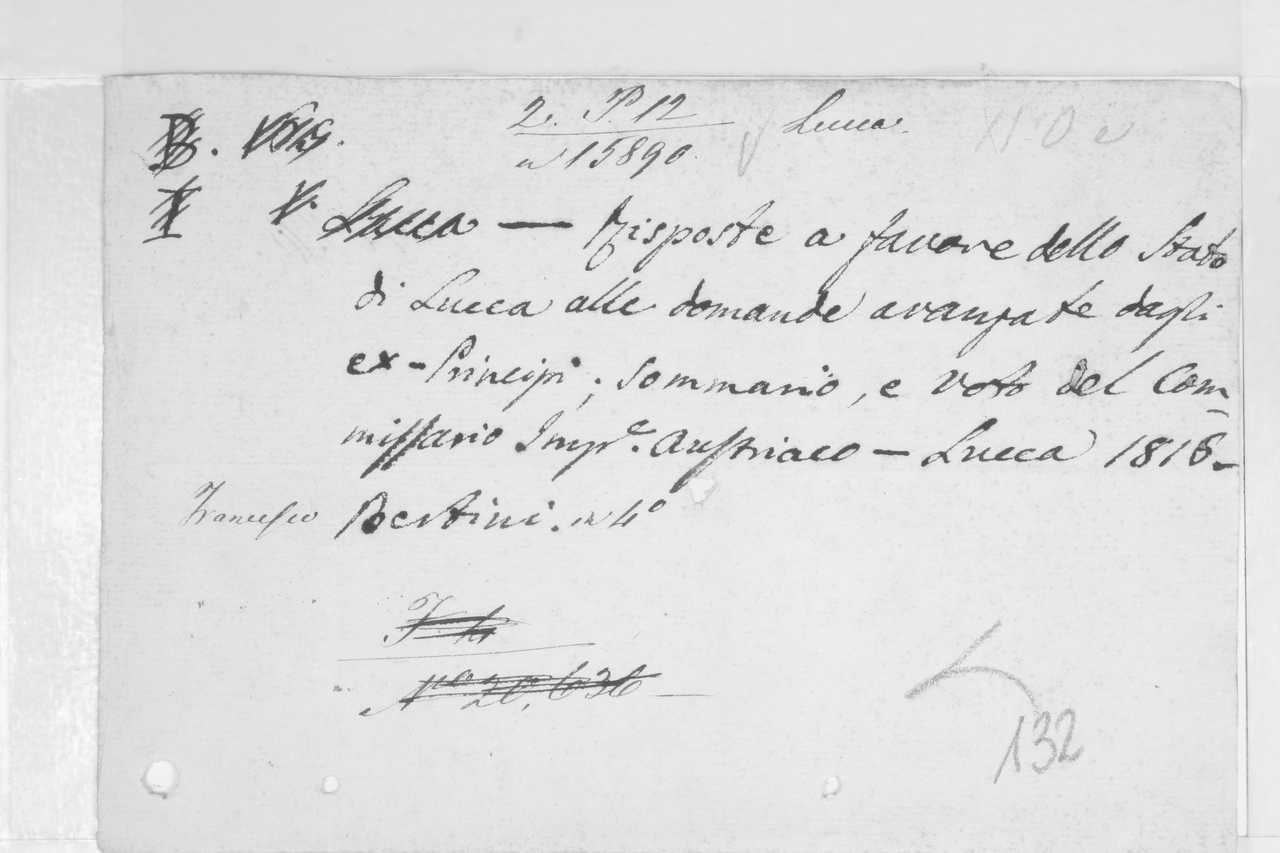 2. P. 12 Lucca.
n 15890.
V. Lucca — Risposte a favore dello Stato
di Lucca alle domande avanzate dagli
ex-Principi; Sommario, e voto del Com-
missario Imp.e Austriaco — Lucca 1816 –
Francesco Bertini. in 4°
N.o 20,636
132